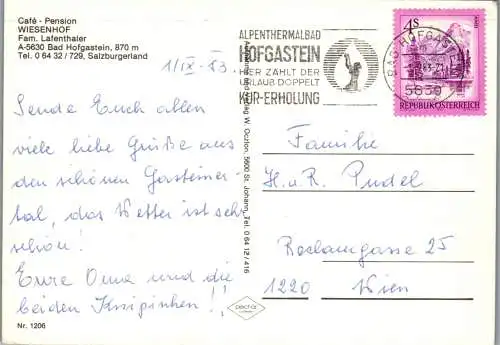 Café - Pension
WIESENHOF
Fam. Lafenthaler
A-5630 Bad Hofgastein, 870 m
Tel. 0 64 32 / 729, Salzburgerland
1/IX - 83.
Sende Euch allen
viele liebe Grüße aus
den schönen Gasteiner-
tal, das Wetter ist sehr
schön!
Eure Oma und die
beiden
Nr. 1206
W. Oczlon, 5600 St. Johann, Tel. 0 64 12 / 416
ALPENTHERMALBAD
HOFGASTEIN
HIER ZÄHLT DER
URLAUB DOPPELT
KUR-ERHOLUNG
BAD HOFGASTEIN
5630
4S
REPUBLIK ÖSTERREICH
Familie
H. u. R. Pudel
Reclamgasse 25
1220 Wien